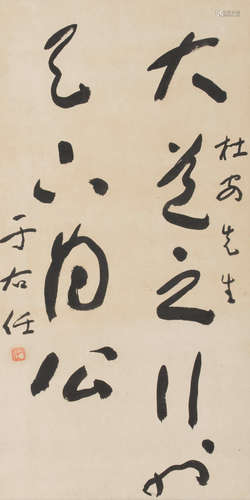 杜安先生
大道之行也
天下为公
于右任